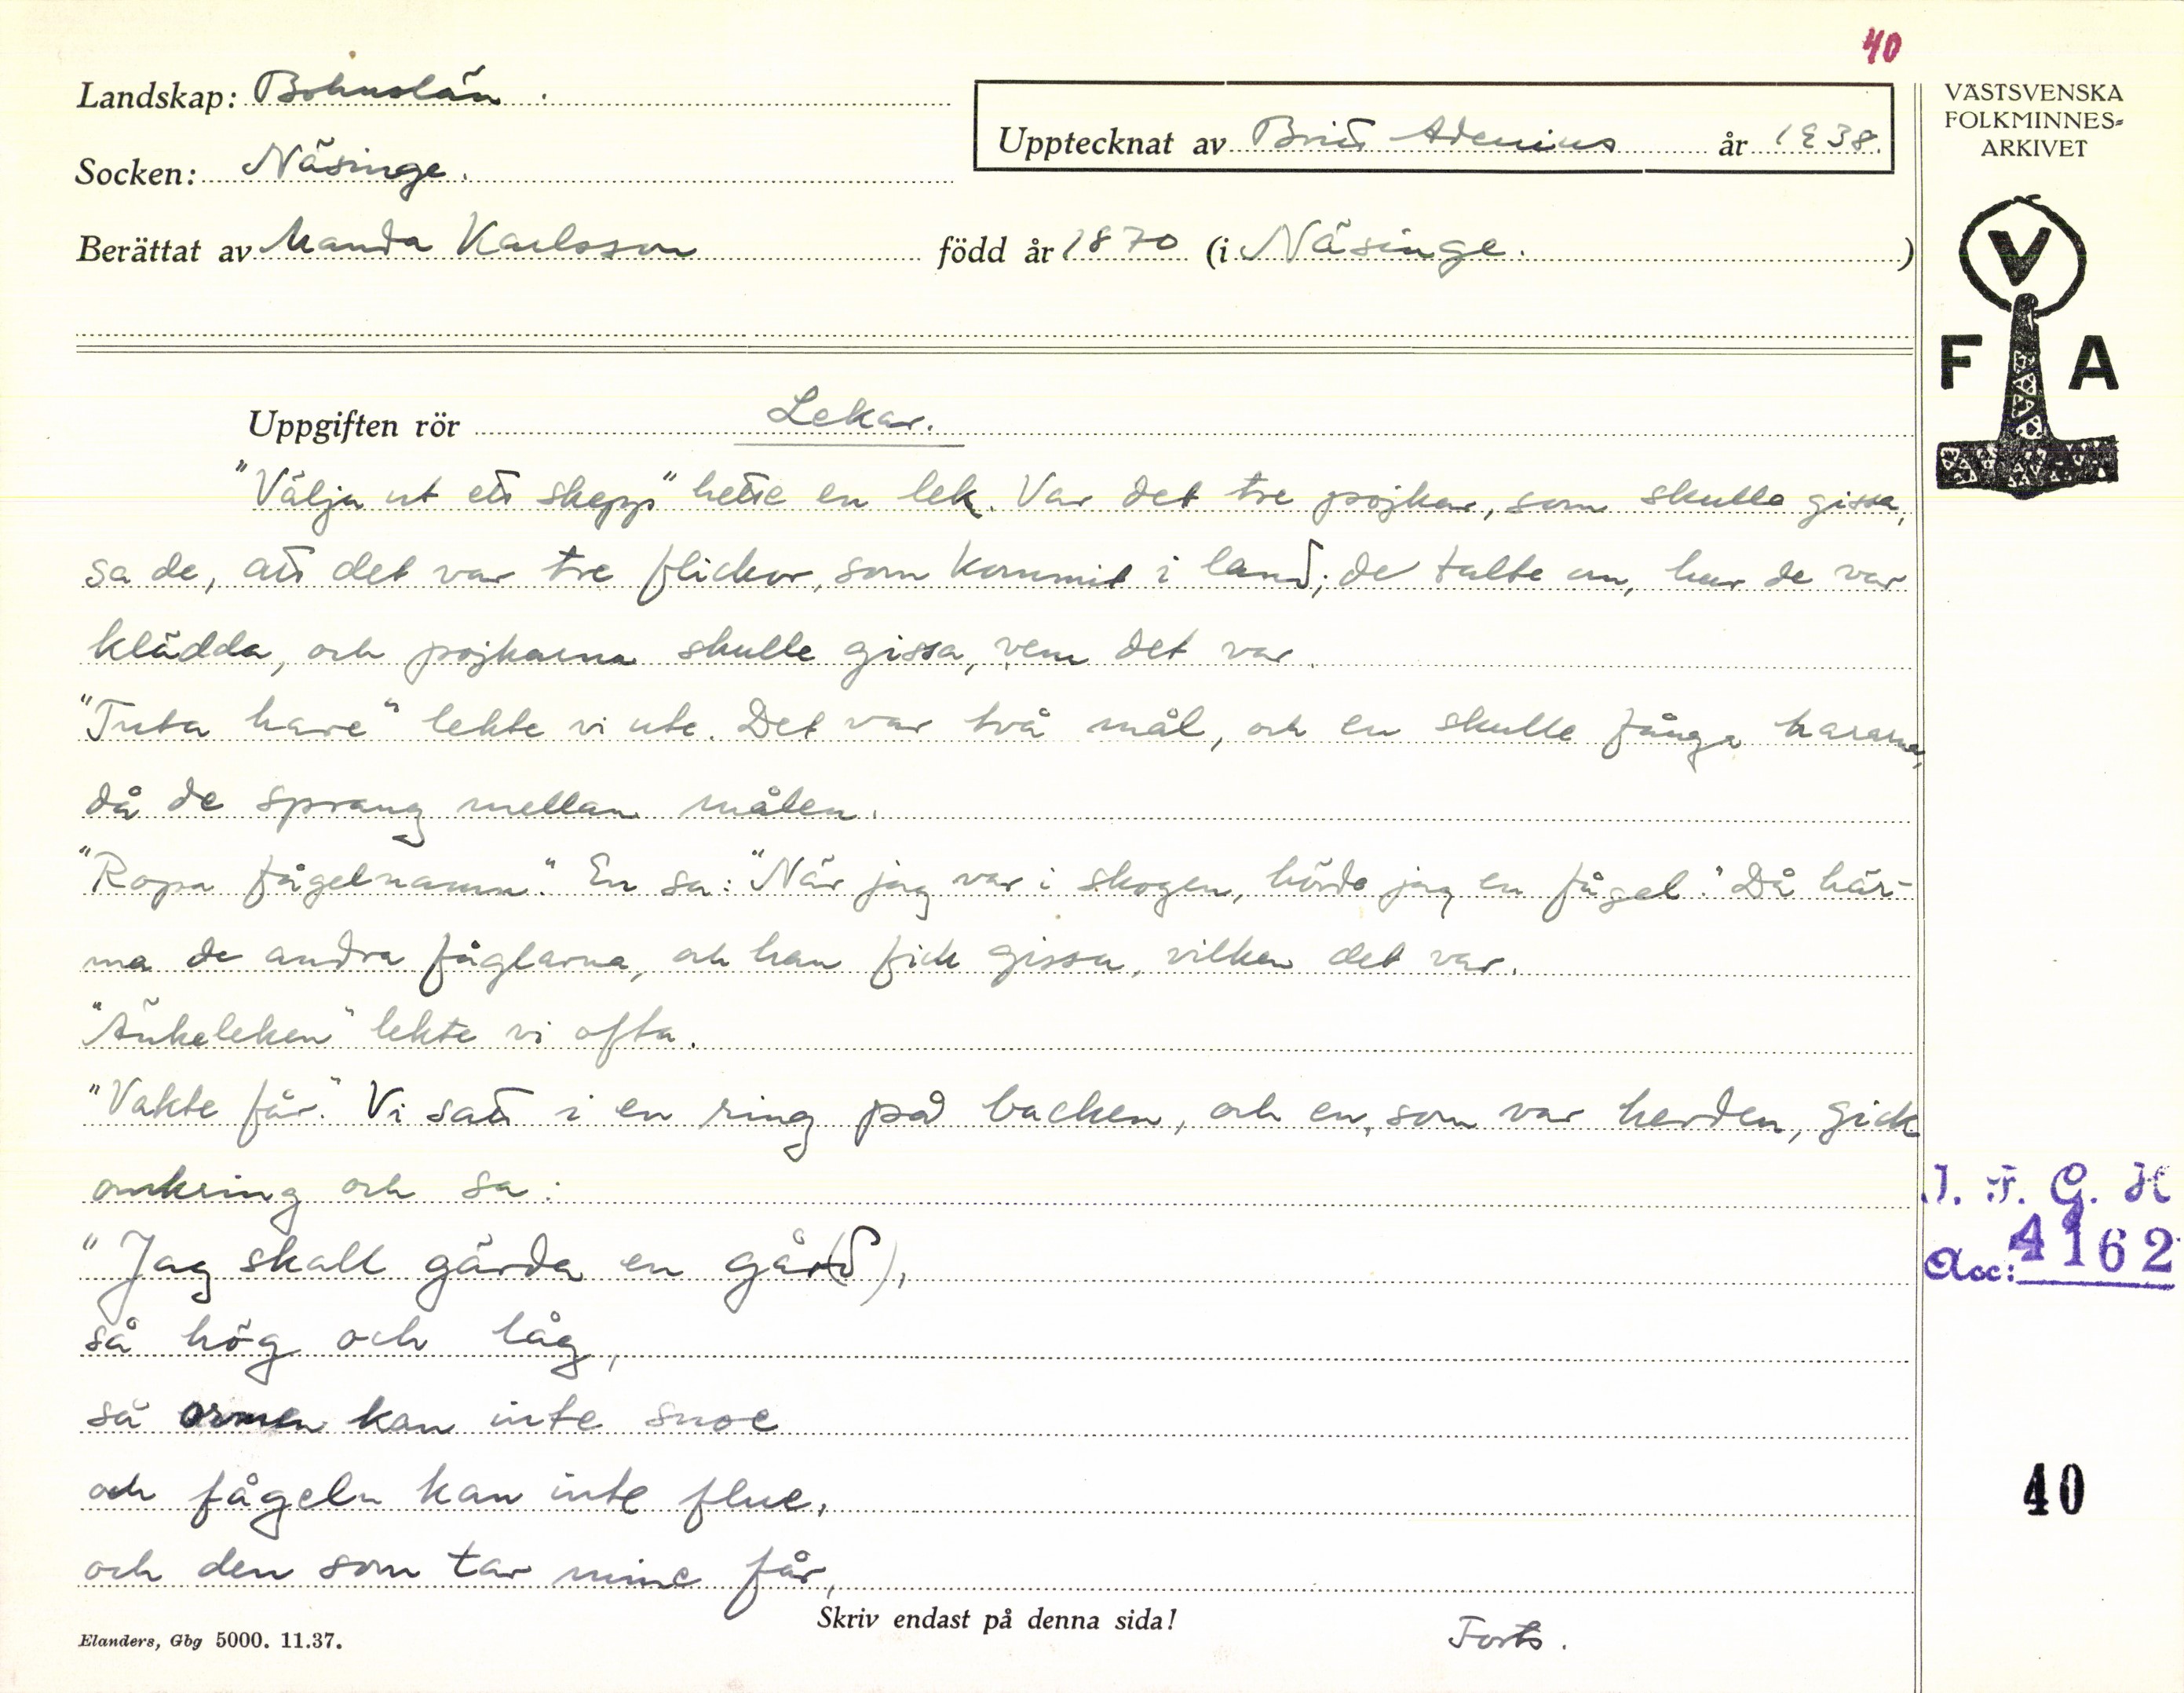 40
Landskap: Bohuslän.
Upptecknat av Brita Adenius år 1938.
VÄSTSVENSKA
FOLKMINNES-
ARKIVET
Socken: Näsinge.
Berättat av Manda Karlsson född år 1870 (i Näsinge.)
V
F A
Uppgiften rör Lekar.
"Välja ut ett skepp" hette en lek. Var det tre pojkar, som skulle gissa,
sa de, att det var tre flickor, som kommit i land; de talte om, hur de var
klädda, och pojkarna skulle gissa, vem det var.
"Tuta hare" lekte vi ute. Det var två mål, och en skulle fånga hararna,
då de sprang mellan målen.
"Ropa fågelnamn." En sa: "När jag var i skogen, hörde jag en fågel." Då här-
ma de andra fåglarna, och han fick gissa, vilken det var.
"Änkeleken" lekte vi ofta.
"Vakte får." Vi satt i en ring på backen, och en, som var herden, gick
omkring och sa:
"Jag skall gärda en går(d),
så hög och låg,
så ormen kan inte snoe
och fågeln kan inte flue,
och den som tar mine får,
I. F. G. H
Acc: 4162
40
Skriv endast på denna sida!
Elanders, Gbg 5000. 11.37.
Forts.